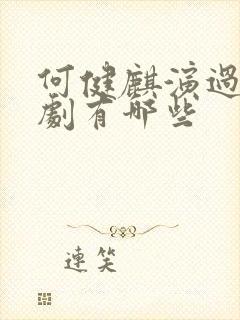 何健麒演過
劇有哪些
連笑